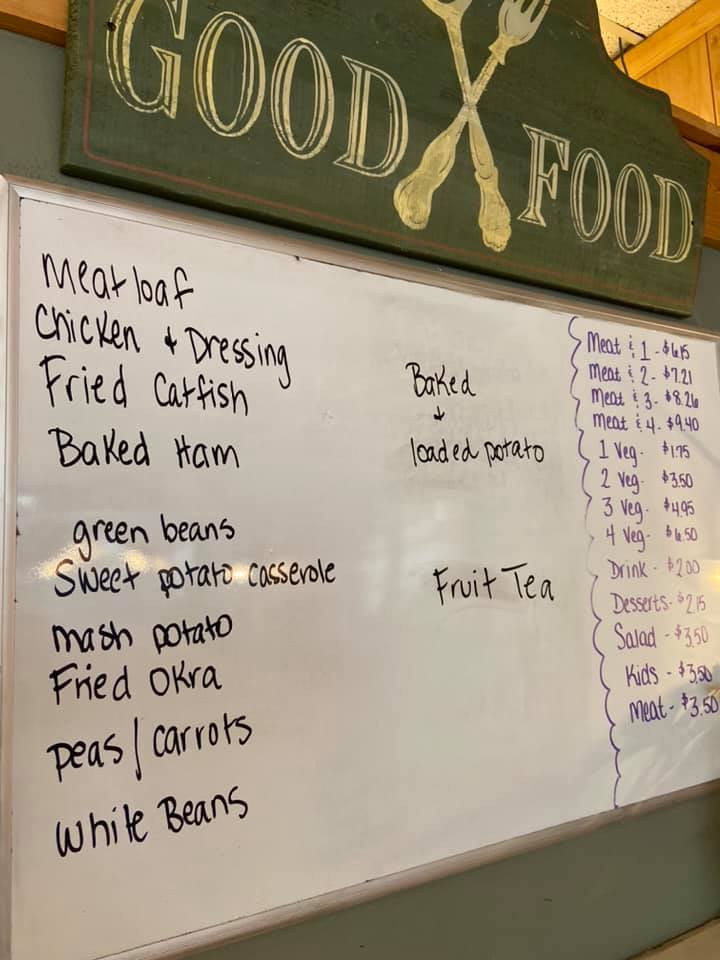 GOOD FOOD
Meatloaf
Chicken + Dressing
Fried Catfish
Baked Ham
green beans
Sweet potato casserole
mash potato
Fried Okra
peas/carrots
White Beans
Baked
+
loaded potato
Fruit Tea
Meat & 1 - $6.15
Meat & 2 - $7.21
Meat & 3 - $8.26
Meat & 4 - $9.40
1 Veg - $1.75
2 Veg - $3.50
3 Veg - $4.95
4 Veg - $6.50
Drink - $2.00
Desserts - $2.15
Salad - $3.50
Kids - $3.50
Meat - $3.50